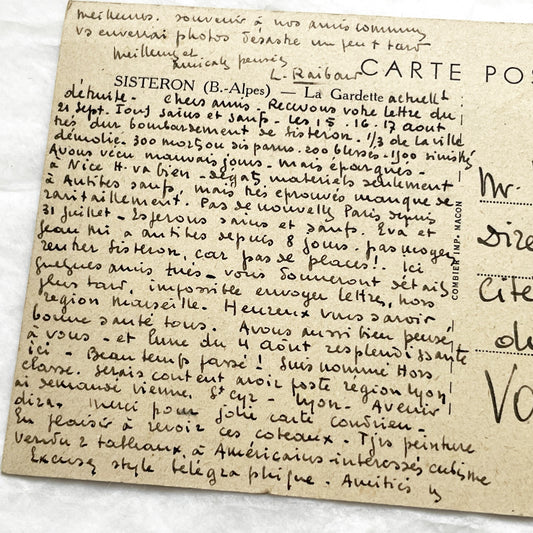 meilleurs. souvenir à nos amis communs
vs enverrai photos désastre un peu + tard
Meilleures et
amicales pensées
L. Raibaud
CARTE POS
SISTERON (B.-Alpes) — La Gardette actuellt
détruite - Chers amis - Recevons votre lettre du
21 sept. Tous sains et saufs - les 15. 16. 17 aout
très dur bombardement de Sisteron. 1/3 de la ville
démolie. 300 morts ou disparus. 200 blessés - 1500 sinistrés
Avons vécu mauvais jours - mais épargnés -
à Nice H. va bien - dégats matériels seulement
à Antibes saufs, mais très éprouvés manque de
ravitaillement. Pas de nouvelles Paris depuis
31 juillet - Espérons sains et saufs. Eva et
Jean à Antibes depuis 8 jours. pas moyen
rentrer Sisteron, car pas de places! Ici
quelques amis tués - vous donnerons détails
plus tard, impossible envoyer lettres, hors
région Marseille. Heureux vous savoir
bonne santé tous. Avons aussi bien pensé
à vous - et lune du 4 aout resplendissante
ici - Beau temps passé! Suis nommé Hors
classe. Serais content avoir poste région Lyon
ai demandé Vienne. St Cyr - Lyon - Avenir
dira. Merci pour jolie carte Condrieu -
En plaisir à revoir ces coteaux - Tjrs peinture
vendu 2 tableaux à Américains intéressés cubisme
Excusez style télégraphique. Amitiés
COMBIER IMP. MACON
Mr.
Dire
Cite
du
Va